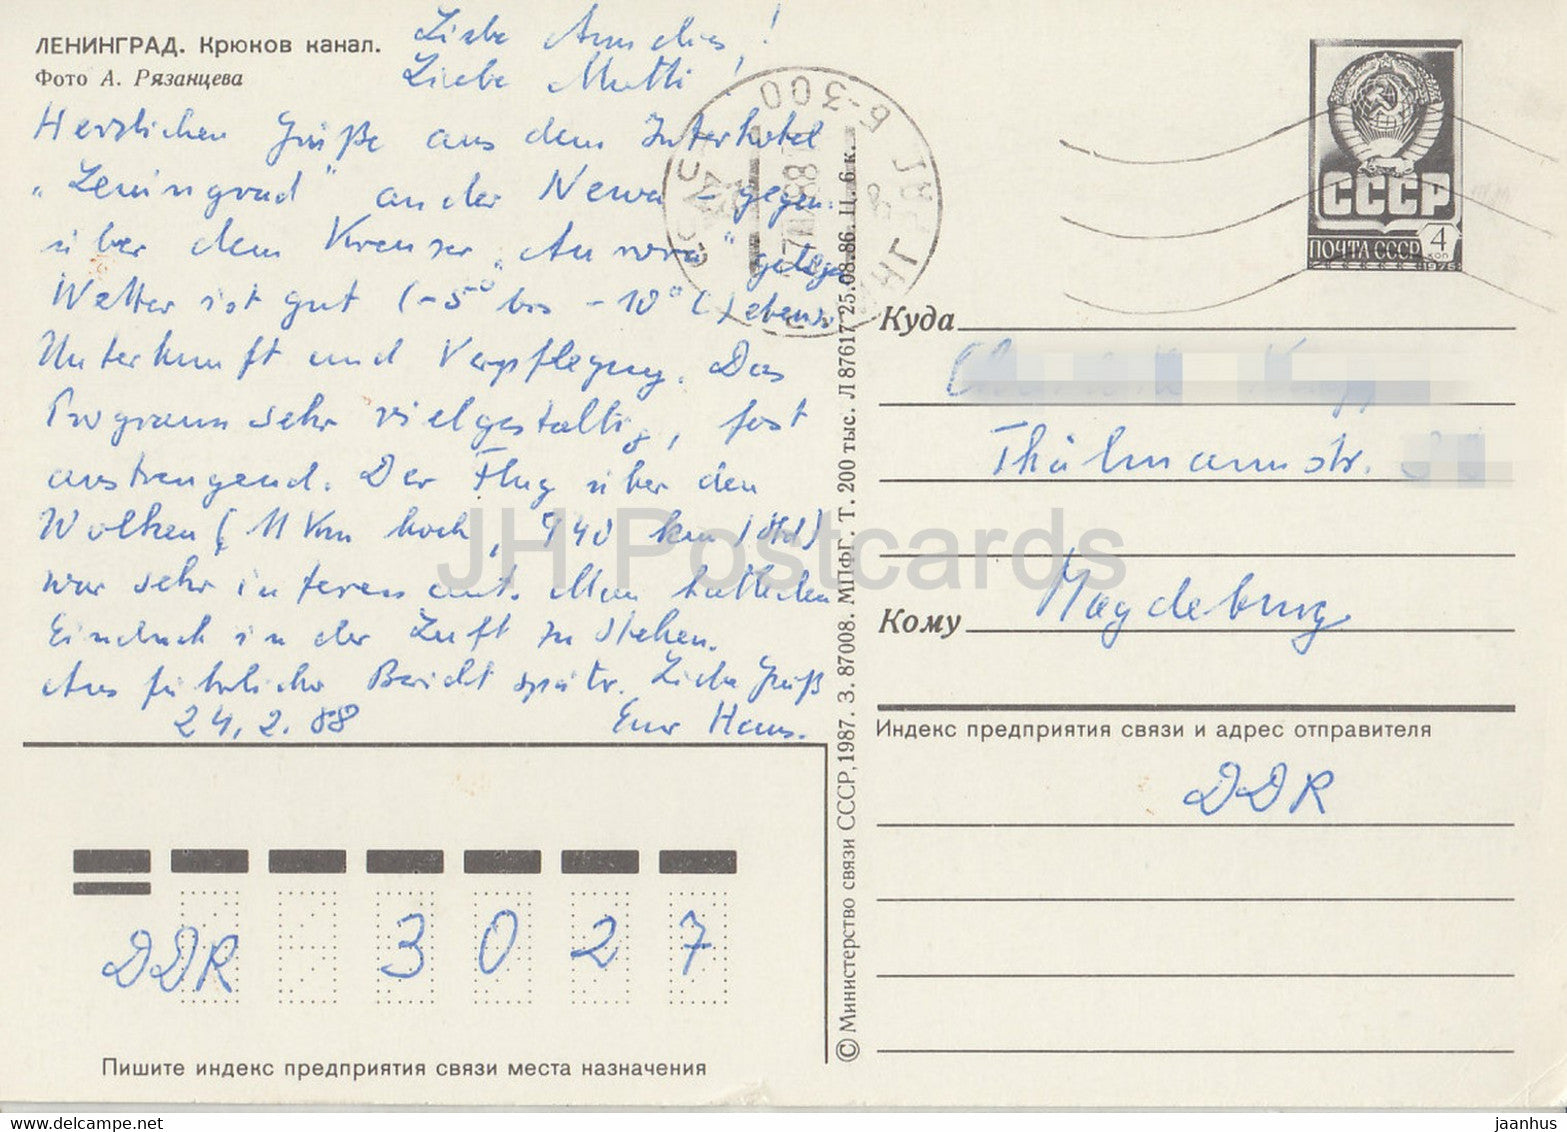 ЛЕНИНГРАД. Крюков канал.
Фото А. Рязанцева
Liebe Annelies!
Liebe Mutti!
Herzlichen Grüße aus dem Interhotel
„Leningrad" an der Newa - gegen-
über dem Kreuzer „Aurora" gelege
Wetter ist gut (-5° bis -10° C) ebenso
Unterkunft und Verpflegung. Das
Programm sehr vielgestaltig, fast
anstrengend. Der Flug über den
Wolken (11 km hoch, 940 km/Std)
war sehr interessant. Man hatte den
Eindruck in der Luft zu stehen.
Ausführlicher Bericht später. Liebe Grüße
24.2.88 Euer Hans.
ПОЧТА СССР
СССР
4 коп
1976
Б-300
Куда
Thälmannstr.
Magdeburg
Кому
Индекс предприятия связи и адрес отправителя
DDR
DDR 3027
Пишите индекс предприятия связи места назначения
© Министерство связи СССР, 1987. З. 87008. МПФГ. Т. 200 тыс. Л 87617 25.08.86. Ц. 6 к.
JH Postcards
www.delcampe.net
jaanhus